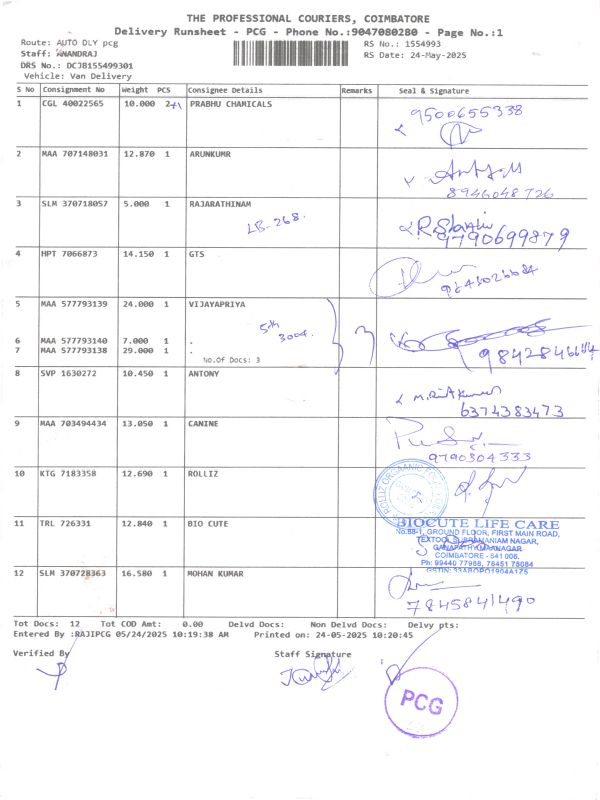 THE PROFESSIONAL COURIERS, COIMBATORE
Delivery Runsheet - PCG - Phone No.:9047080280 - Page No.:1
Route: AUTO DLY pcg
RS No.: 1554993
Staff: ANANDRAJ
RS Date: 24-May-2025
DRS No.: DCJ8155499301
Vehicle: Van Delivery
S No Consignment No Weight PCS Consignee Details Remarks Seal & Signature
1 CGL 40022565 10.000 2+1 PRABHU CHAMICALS
9500655338
2 MAA 707148031 12.870 1 ARUNKUMR
8946048726
3 SLM 370718057 5.000 1 RAJARATHINAM
LB-268.
9790699879
4 HPT 7066873 14.150 1 GTS
5 MAA 577793139 24.000 1 VIJAYAPRIYA
5th
3004.
3
6 MAA 577793140 7.000 1 .
7 MAA 577793138 29.000 1 .
No.Of Docs: 3
9842846644
8 SVP 1630272 10.450 1 ANTONY
6374383473
9 MAA 703494434 13.050 1 CANINE
9790304333
10 KTG 7183358 12.690 1 ROLLIZ
11 TRL 726331 12.840 1 BIO CUTE
BIOCUTE LIFE CARE
No.88-1, GROUND FLOOR, FIRST MAIN ROAD,
TEXTOOL SUBRAMANIAM NAGAR,
GANAPATHY MAANAGAR
COIMBATORE - 641 006.
Ph: 99440 77988, 78451 75084
12 SLM 370728363 16.580 1 MOHAN KUMAR
7845841490
Tot Docs: 12 Tot COD Amt: 0.00 Delvd Docs: Non Delvd Docs: Delvy pts:
Entered By :RAJIPCG 05/24/2025 10:19:38 AM Printed on: 24-05-2025 10:20:45
Verified By Staff Signature
PCG